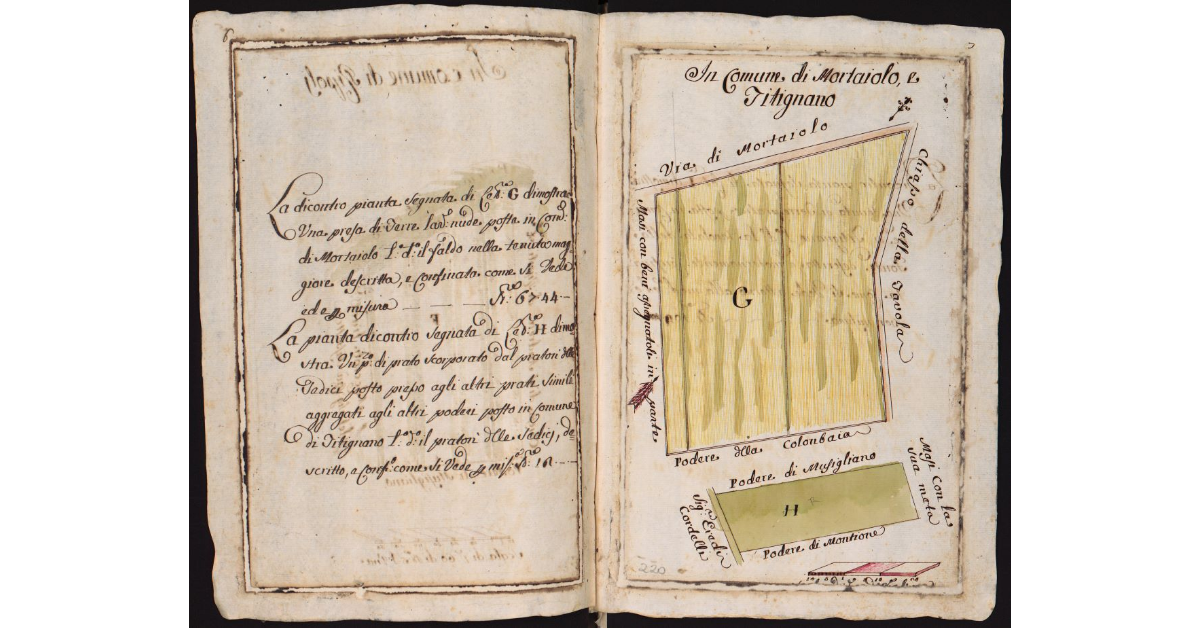 6
La dicontro pianta segnata di L.ª G dimostra
Una presa di Terre lav: nude poste in Com:
di Mortaiolo l:º d:º il faldo nella tenuta mag
giore descritta, e confinata come si Vede
ed e misura — — — S:ª 67 44 —
La pianta dicontro segnata di H dimo
stra Un p:º di prato scorporato dal praton delle
Sedici posto presso agli altri prati simili
aggregati agli altri poderi posto in comune
di Titignano l:º d:º il praton delle Sedici, de
scritto, e conf:º come si Vede mis:
7
In Comune di Mortaiolo, e
Titignano
Via di Mortaiolo
Chiasso della Tavola
Masi con beni in parte
G
Podere della Colonbaia
Podere di Musigliano
Masi con la
sua meta
H
Sig: Eredi
Cordelle
Podere di Montione
220